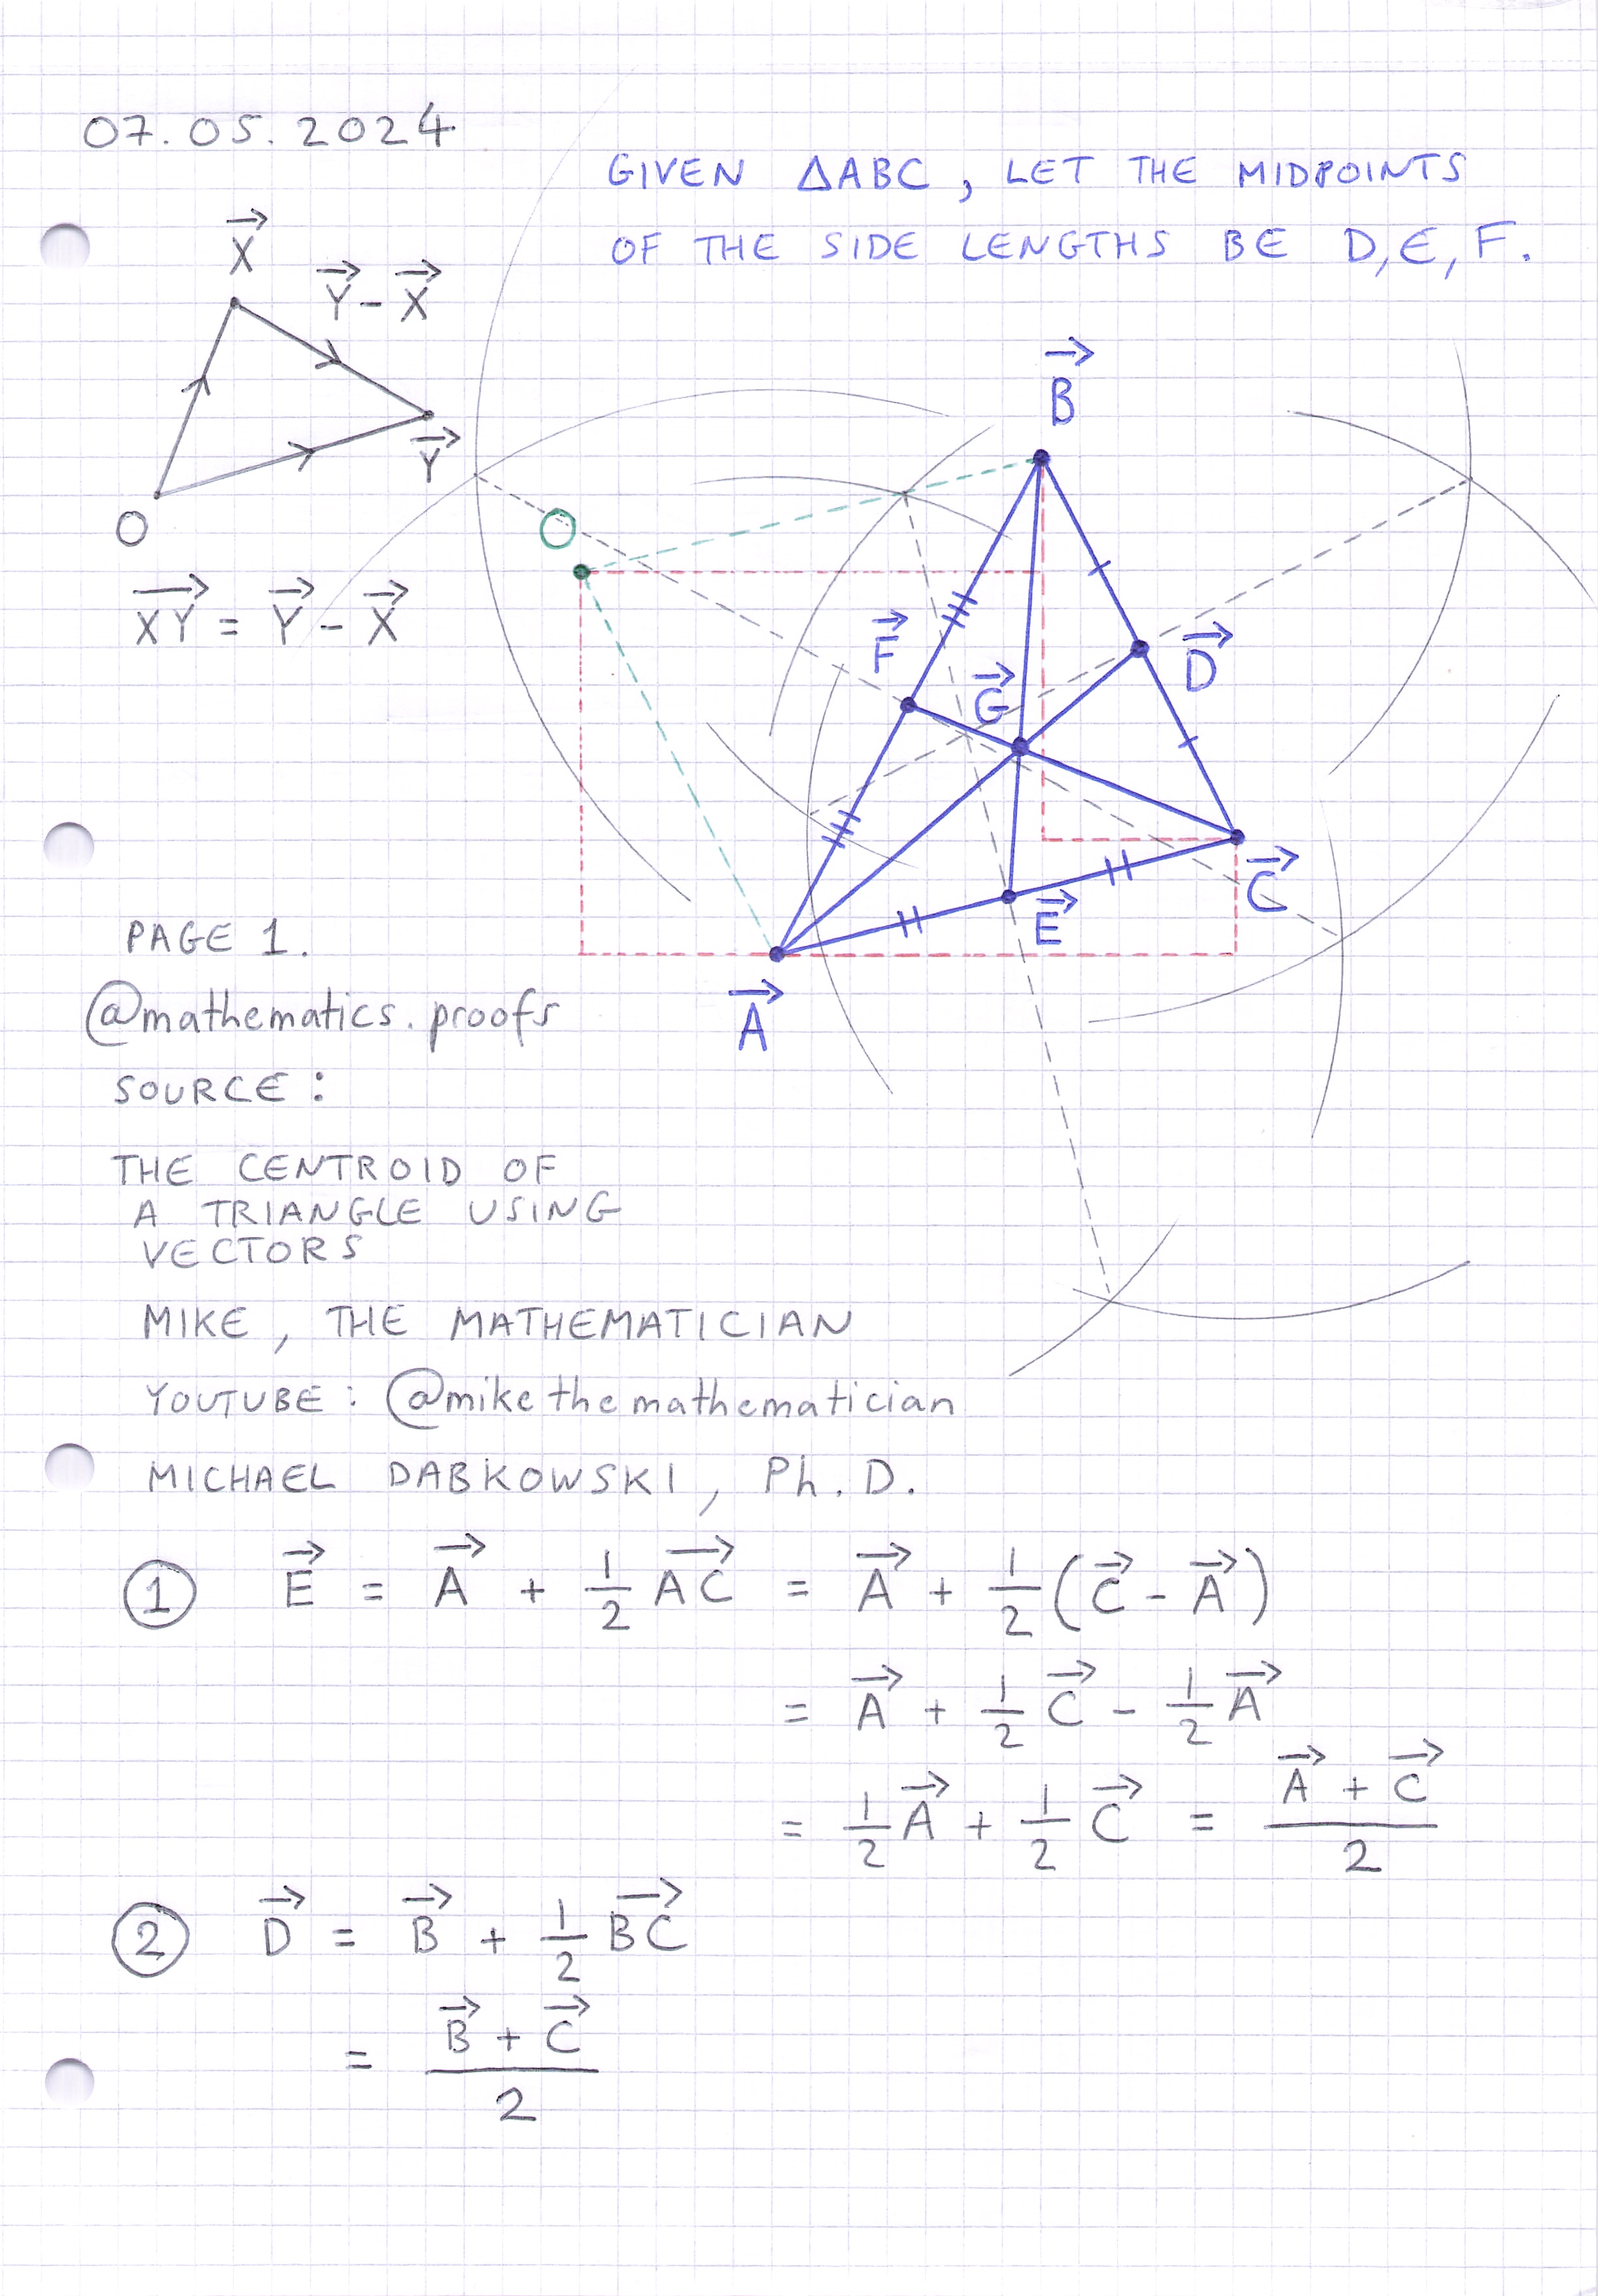 07.05.2024
GIVEN ΔABC, LET THE MIDPOINTS
OF THE SIDE LENGTHS BE D,E,F.
X⃗
Y⃗ - X⃗
Y⃗
O
XY⃗ = Y⃗ - X⃗
B⃗
O
F⃗
G⃗
D⃗
C⃗
E⃗
A⃗
PAGE 1.
@mathematics.proofs
SOURCE:
THE CENTROID OF
A TRIANGLE USING
VECTORS
MIKE, THE MATHEMATICIAN
YOUTUBE: @mikethemathematician
MICHAEL DABKOWSKI, Ph.D.
① E⃗ = A⃗ + 1/2 AC⃗ = A⃗ + 1/2 (C⃗ - A⃗)
= A⃗ + 1/2 C⃗ - 1/2 A⃗
= 1/2 A⃗ + 1/2 C⃗ = (A⃗ + C⃗)/2
② D⃗ = B⃗ + 1/2 BC⃗
= (B⃗ + C⃗)/2